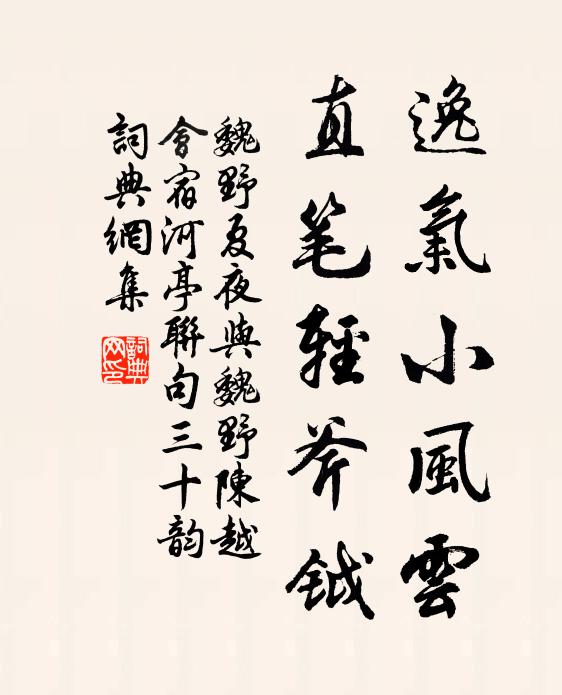 逸氣小風雲
直笔輕斧鉞
魏野夏夜與魏野陳越
會宿河亭聯句三十韵
詞典網集
詞典网印